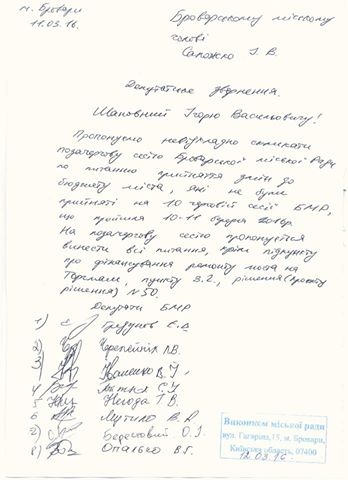 м. Бровари
11.03.16.
Броварському міському
голові
Сапожко І. В.
Депутатське звернення.
Шановний Ігорю Васильовичу!
Пропонуємо невідкладно скликати
позачергову сесію Броварської міської ради
по питанню прийняття змін до
бюджету міста, які не були
прийняті на 10 черговій сесії БМР,
що пройшла 10-11 2016р.
На позачергову сесію пропонується
винести всі питання, крім підпункту
про фінансування ремонту моста на
пункту 3.2., рішення (проекту
рішення) №50.
Депутати БМР
1) Грузунов Є.В
2) Черепейнік Л.В.
3) Іваненко В.І,
4 С.У
5 Негода Т.В.
6 В.А
7) Береговий О.І.
8) Опалько В.Г.
Виконком міської ради
вул. Гагаріна,15, м. Бровари,
Київська область, 07400
12.03.16.